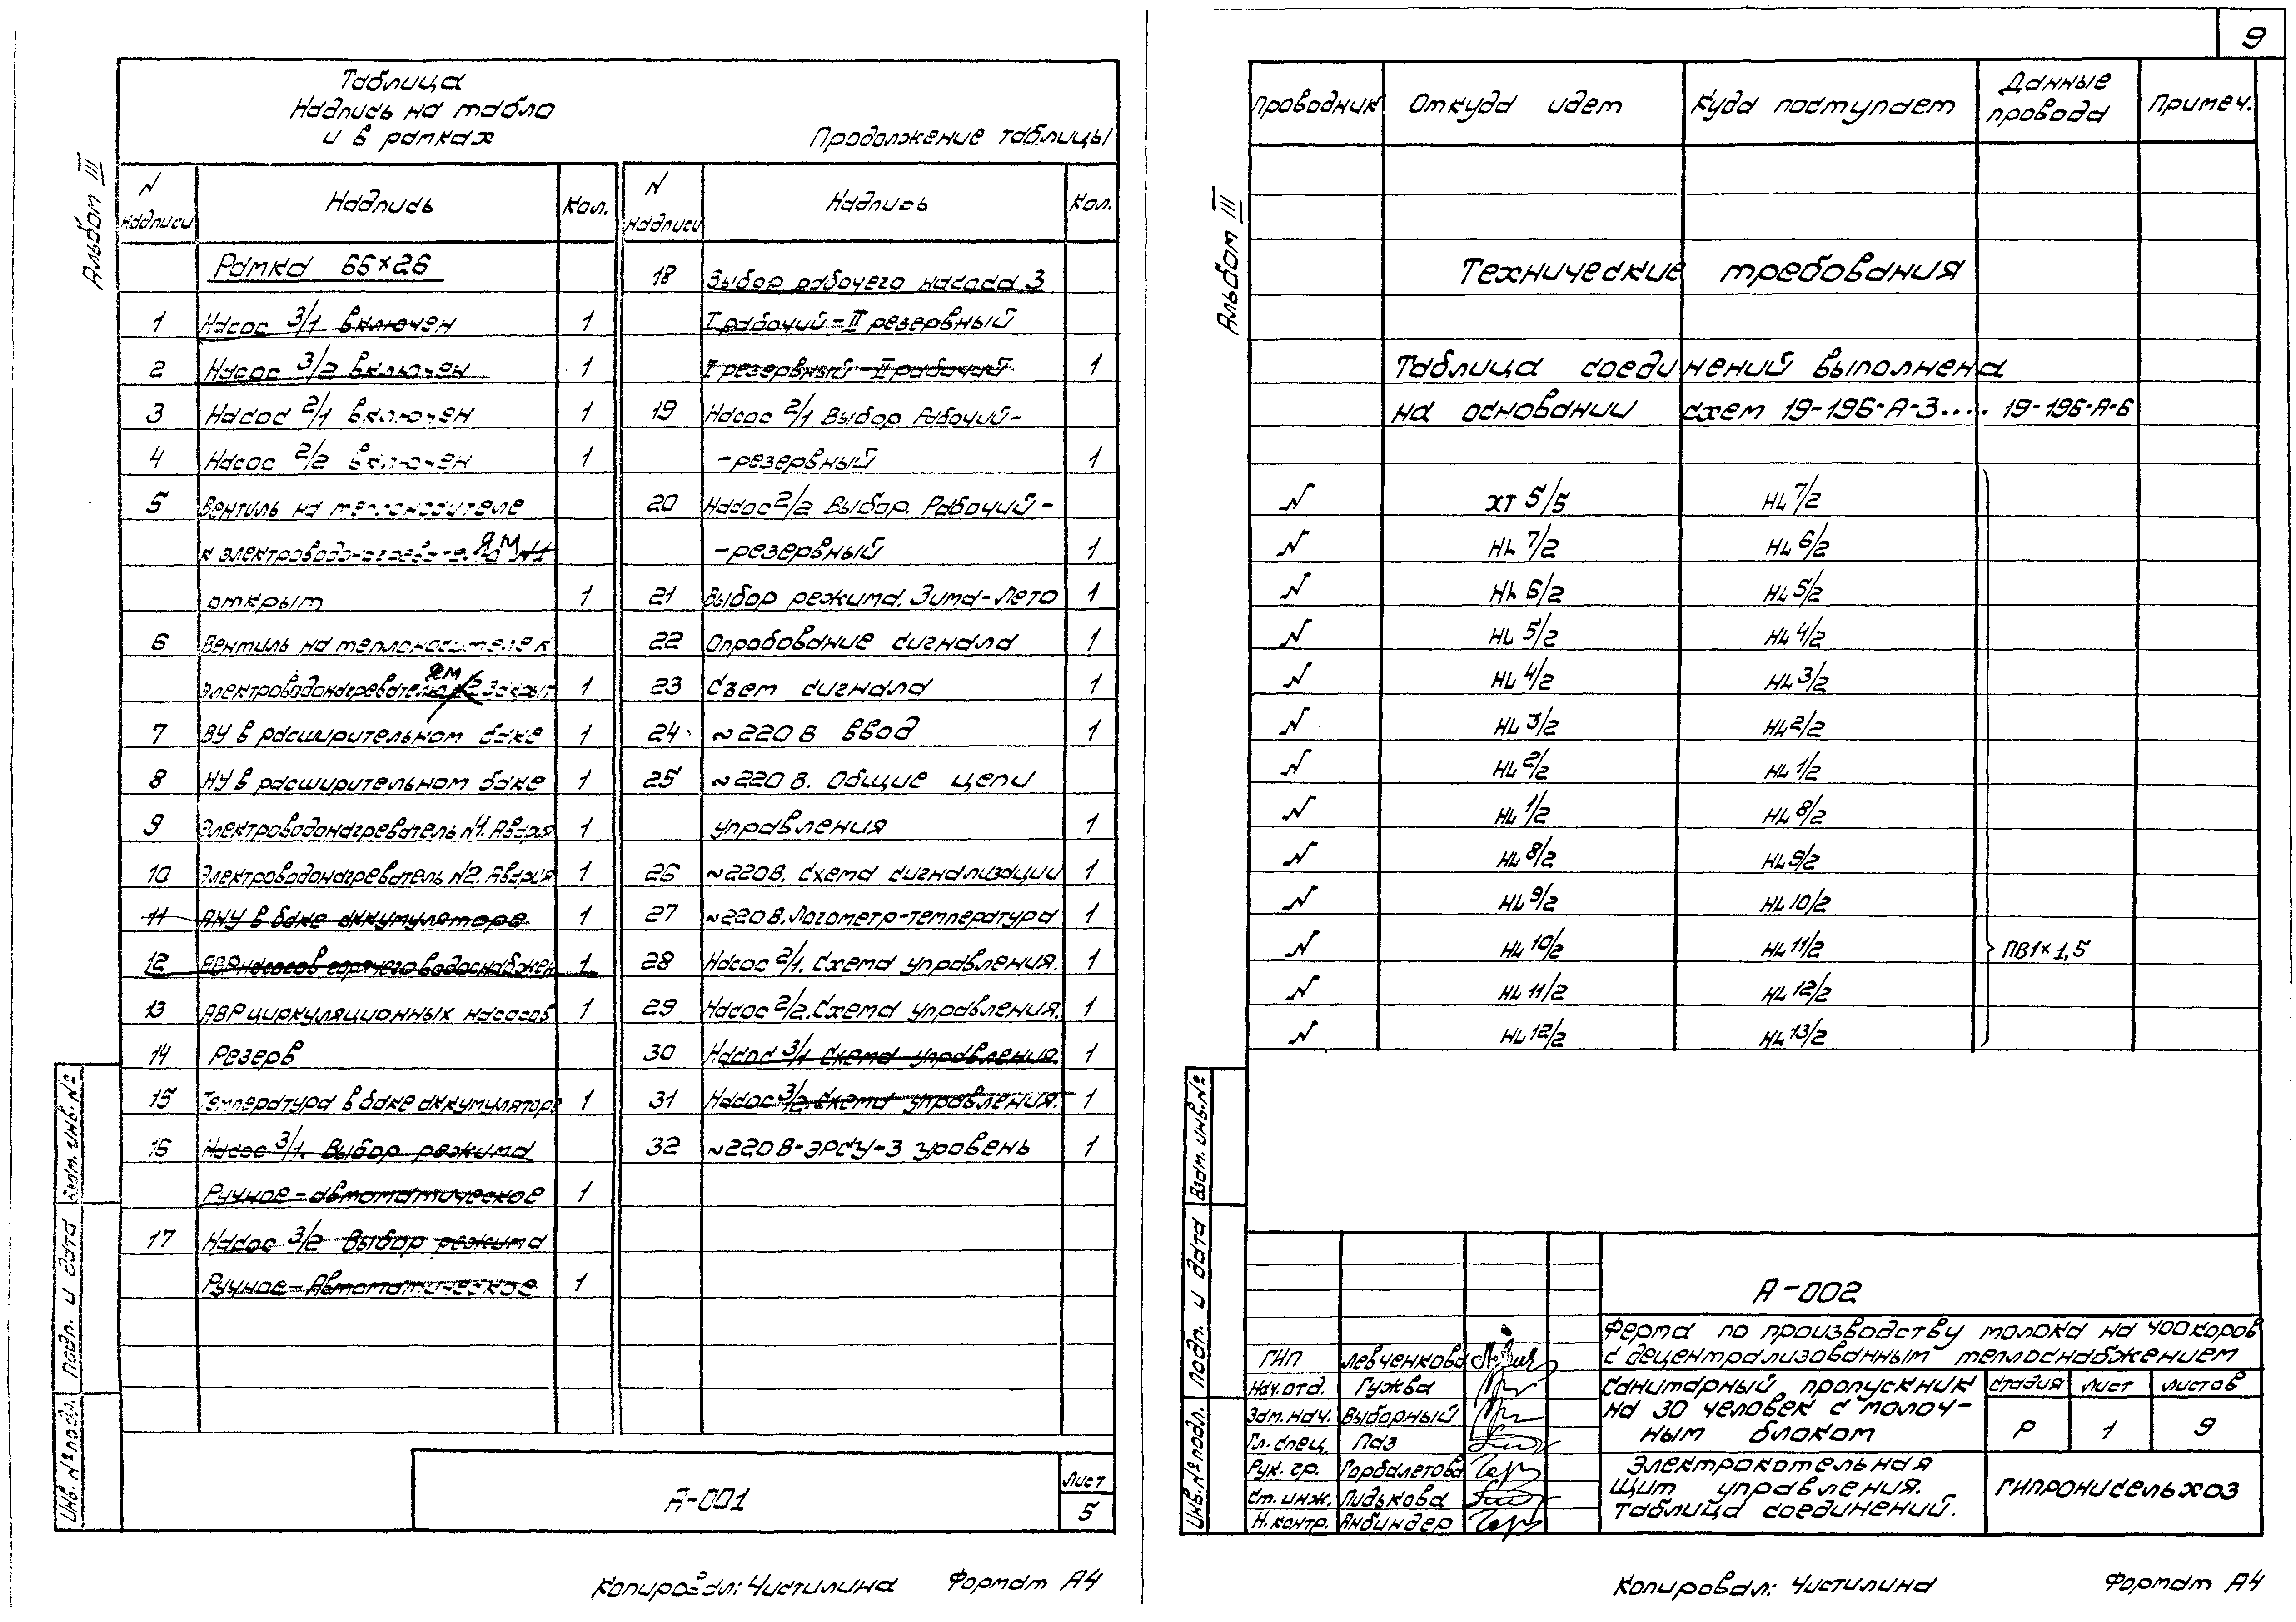 Альбом III
Таблица
Надпись на табло
и в рамках
Продолжение таблицы
N надписи Надпись Кол. N надписи Надпись Кол.
Рамка 66×26
1 Насос 3/1 включен 1
2 Насос 3/2 включен 1
3 Насос 2/1 включен 1
4 Насос 2/2 включен 1
5 Вентиль на теплоносителе
к электроводонагревателю ЯМ N1
открыт 1
6 Вентиль на теплоносителе к
электроводонагревателю ЯМ N2 Закрыт 1
7 ВУ в расширительном баке 1
8 НУ в расширительном баке 1
9 Электроводонагреватель N1. Авария 1
10 Электроводонагреватель N2. Авария 1
11 АНУ в баке аккумуляторе 1
12 АВР насосов горячего водоснабжен 1
13 АВР циркуляционных насосов 1
14 Резерв
15 Температура в баке аккумуляторе 1
16 Насос 3/1. Выбор режима
Ручное-автоматическое 1
17 Насос 3/2 Выбор режима
Ручное-Автоматическое 1
18 Выбор рабочего насоса 3
I рабочий-II резервный
I резервный-II рабочий 1
19 Насос 2/1 Выбор Рабочий-
-резервный 1
20 Насос 2/2 Выбор. Рабочий-
-резервный 1
21 Выбор режима. Зима-Лето 1
22 Опробование сигнала 1
23 Съем сигнала 1
24 ~220 В Ввод 1
25 ~220 В. Общие цепи
управления 1
26 ~220В. Схема сигнализации 1
27 ~220В. Логометр-температура 1
28 Насос 2/1. Схема управления. 1
29 Насос 2/2. Схема управления. 1
30 Насос 3/1 Схема управления. 1
31 Насос 3/2. Схема управления. 1
32 ~220В-ЭРСУ-3 уровень 1
Инв. № подл. Подп. и дата Взам. инв. №
А-001
Лист
5
Копировал: Чистилина Формат А4
9
Альбом III
Проводник Откуда идет Куда поступает Данные провода Примеч.
Технические требования
Таблица соединений выполнена
на основании схем 19-196-А-3.... 19-196-А-6
N XT 5/5 HL 7/2
N HL 7/2 HL 6/2
N HL 6/2 HL 5/2
N HL 5/2 HL 4/2
N HL 4/2 HL 3/2
N HL 3/2 HL 2/2
N HL 2/2 HL 1/2
N HL 1/2 HL 8/2
N HL 8/2 HL 9/2
N HL 9/2 HL 10/2
N HL 10/2 HL 11/2 ПВ1×1,5
N HL 11/2 HL 12/2
N HL 12/2 HL 13/2
Инв. № подл. Подп. и дата Взам. инв. №
А-002
Ферма по производству молока на 400 коров
с децентрализованным теплоснабжением
ГИП Левченкова
Нач. отд. Гужва
Зам. нач. Выборный
Гл. спец. Паз
Рук. гр. Горбалетова
Ст. инж. Пидькова
Н. контр. Анбиндер
Санитарный пропускник
на 30 человек с молоч-
ным блоком
стадия лист листов
Р 1 9
Электрокотельная
Щит управления.
Таблица соединений.
ГИПРОНИСЕЛЬХОЗ
Копировал: Чистилина Формат А4